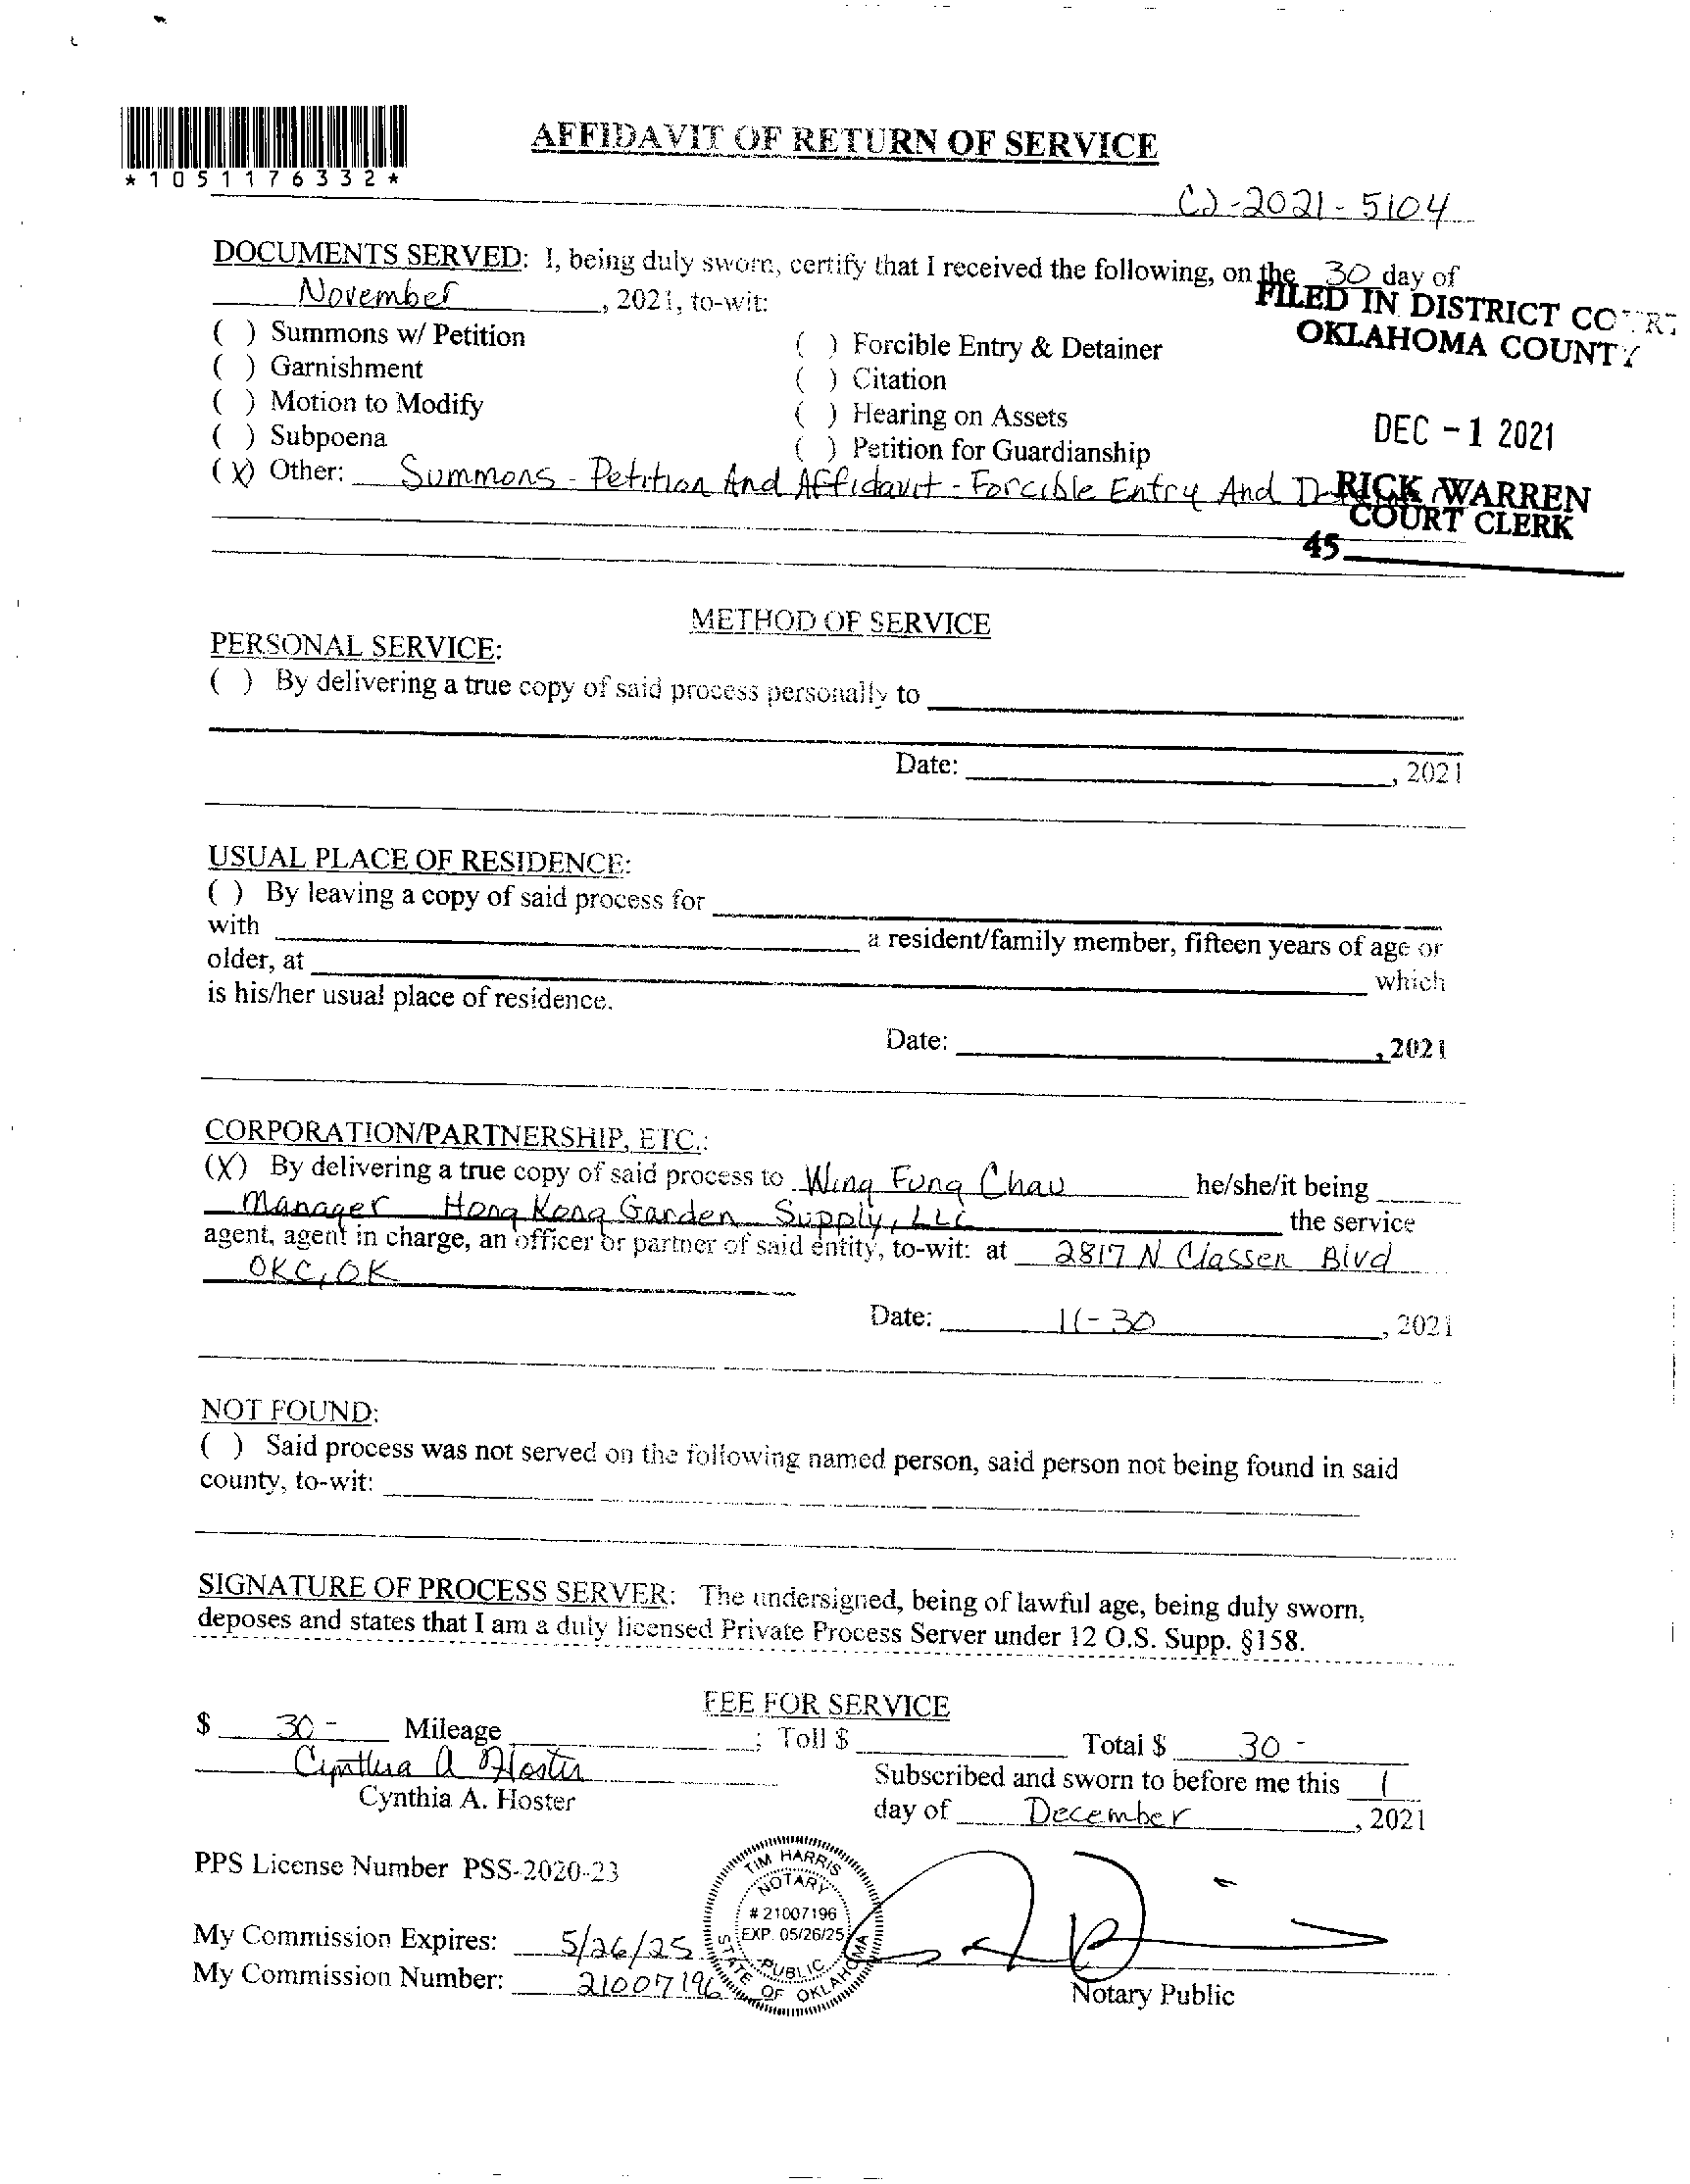 AFFIDAVIT OF RETURN OF SERVICE
*1051176332*
CJ-2021-5104
DOCUMENTS SERVED: I, being duly sworn, certify that I received the following, on the 30 day of
November, 2021, to-wit:
FILED IN DISTRICT COURT
OKLAHOMA COUNTY
( ) Summons w/ Petition
( ) Forcible Entry & Detainer
( ) Garnishment
( ) Citation
( ) Motion to Modify
( ) Hearing on Assets
DEC - 1 2021
( ) Subpoena
( ) Petition for Guardianship
(X) Other: Summons - Petition And Affidavit - Forcible Entry And
RICK WARREN
COURT CLERK
45
METHOD OF SERVICE
PERSONAL SERVICE:
( ) By delivering a true copy of said process personally to
Date: , 2021
USUAL PLACE OF RESIDENCE:
( ) By leaving a copy of said process for
with a resident/family member, fifteen years of age or
older, at which
is his/her usual place of residence.
Date: , 2021
CORPORATION/PARTNERSHIP, ETC.:
(X) By delivering a true copy of said process to Wing Fung Chau he/she/it being
Manager Hong Kong Garden Supply, LLC the service
agent, agent in charge, an officer or partner of said entity, to-wit: at 2817 N Classen Blvd
OKC, OK
Date: 11-30, 2021
NOT FOUND:
( ) Said process was not served on the following named person, said person not being found in said
county, to-wit:
SIGNATURE OF PROCESS SERVER: The undersigned, being of lawful age, being duly sworn,
deposes and states that I am a duly licensed Private Process Server under 12 O.S. Supp. §158.
FEE FOR SERVICE
$ 30 - Mileage ; Toll $ Total $ 30 -
Cynthia A Hoster
Subscribed and sworn to before me this 1
Cynthia A. Hoster
day of December, 2021
PPS License Number PSS-2020-23
TIM HARRIS
NOTARY
# 21007196
EXP. 05/26/25
PUBLIC
STATE OF OKLAHOMA
My Commission Expires: 5/26/25
My Commission Number: 21007196
Notary Public